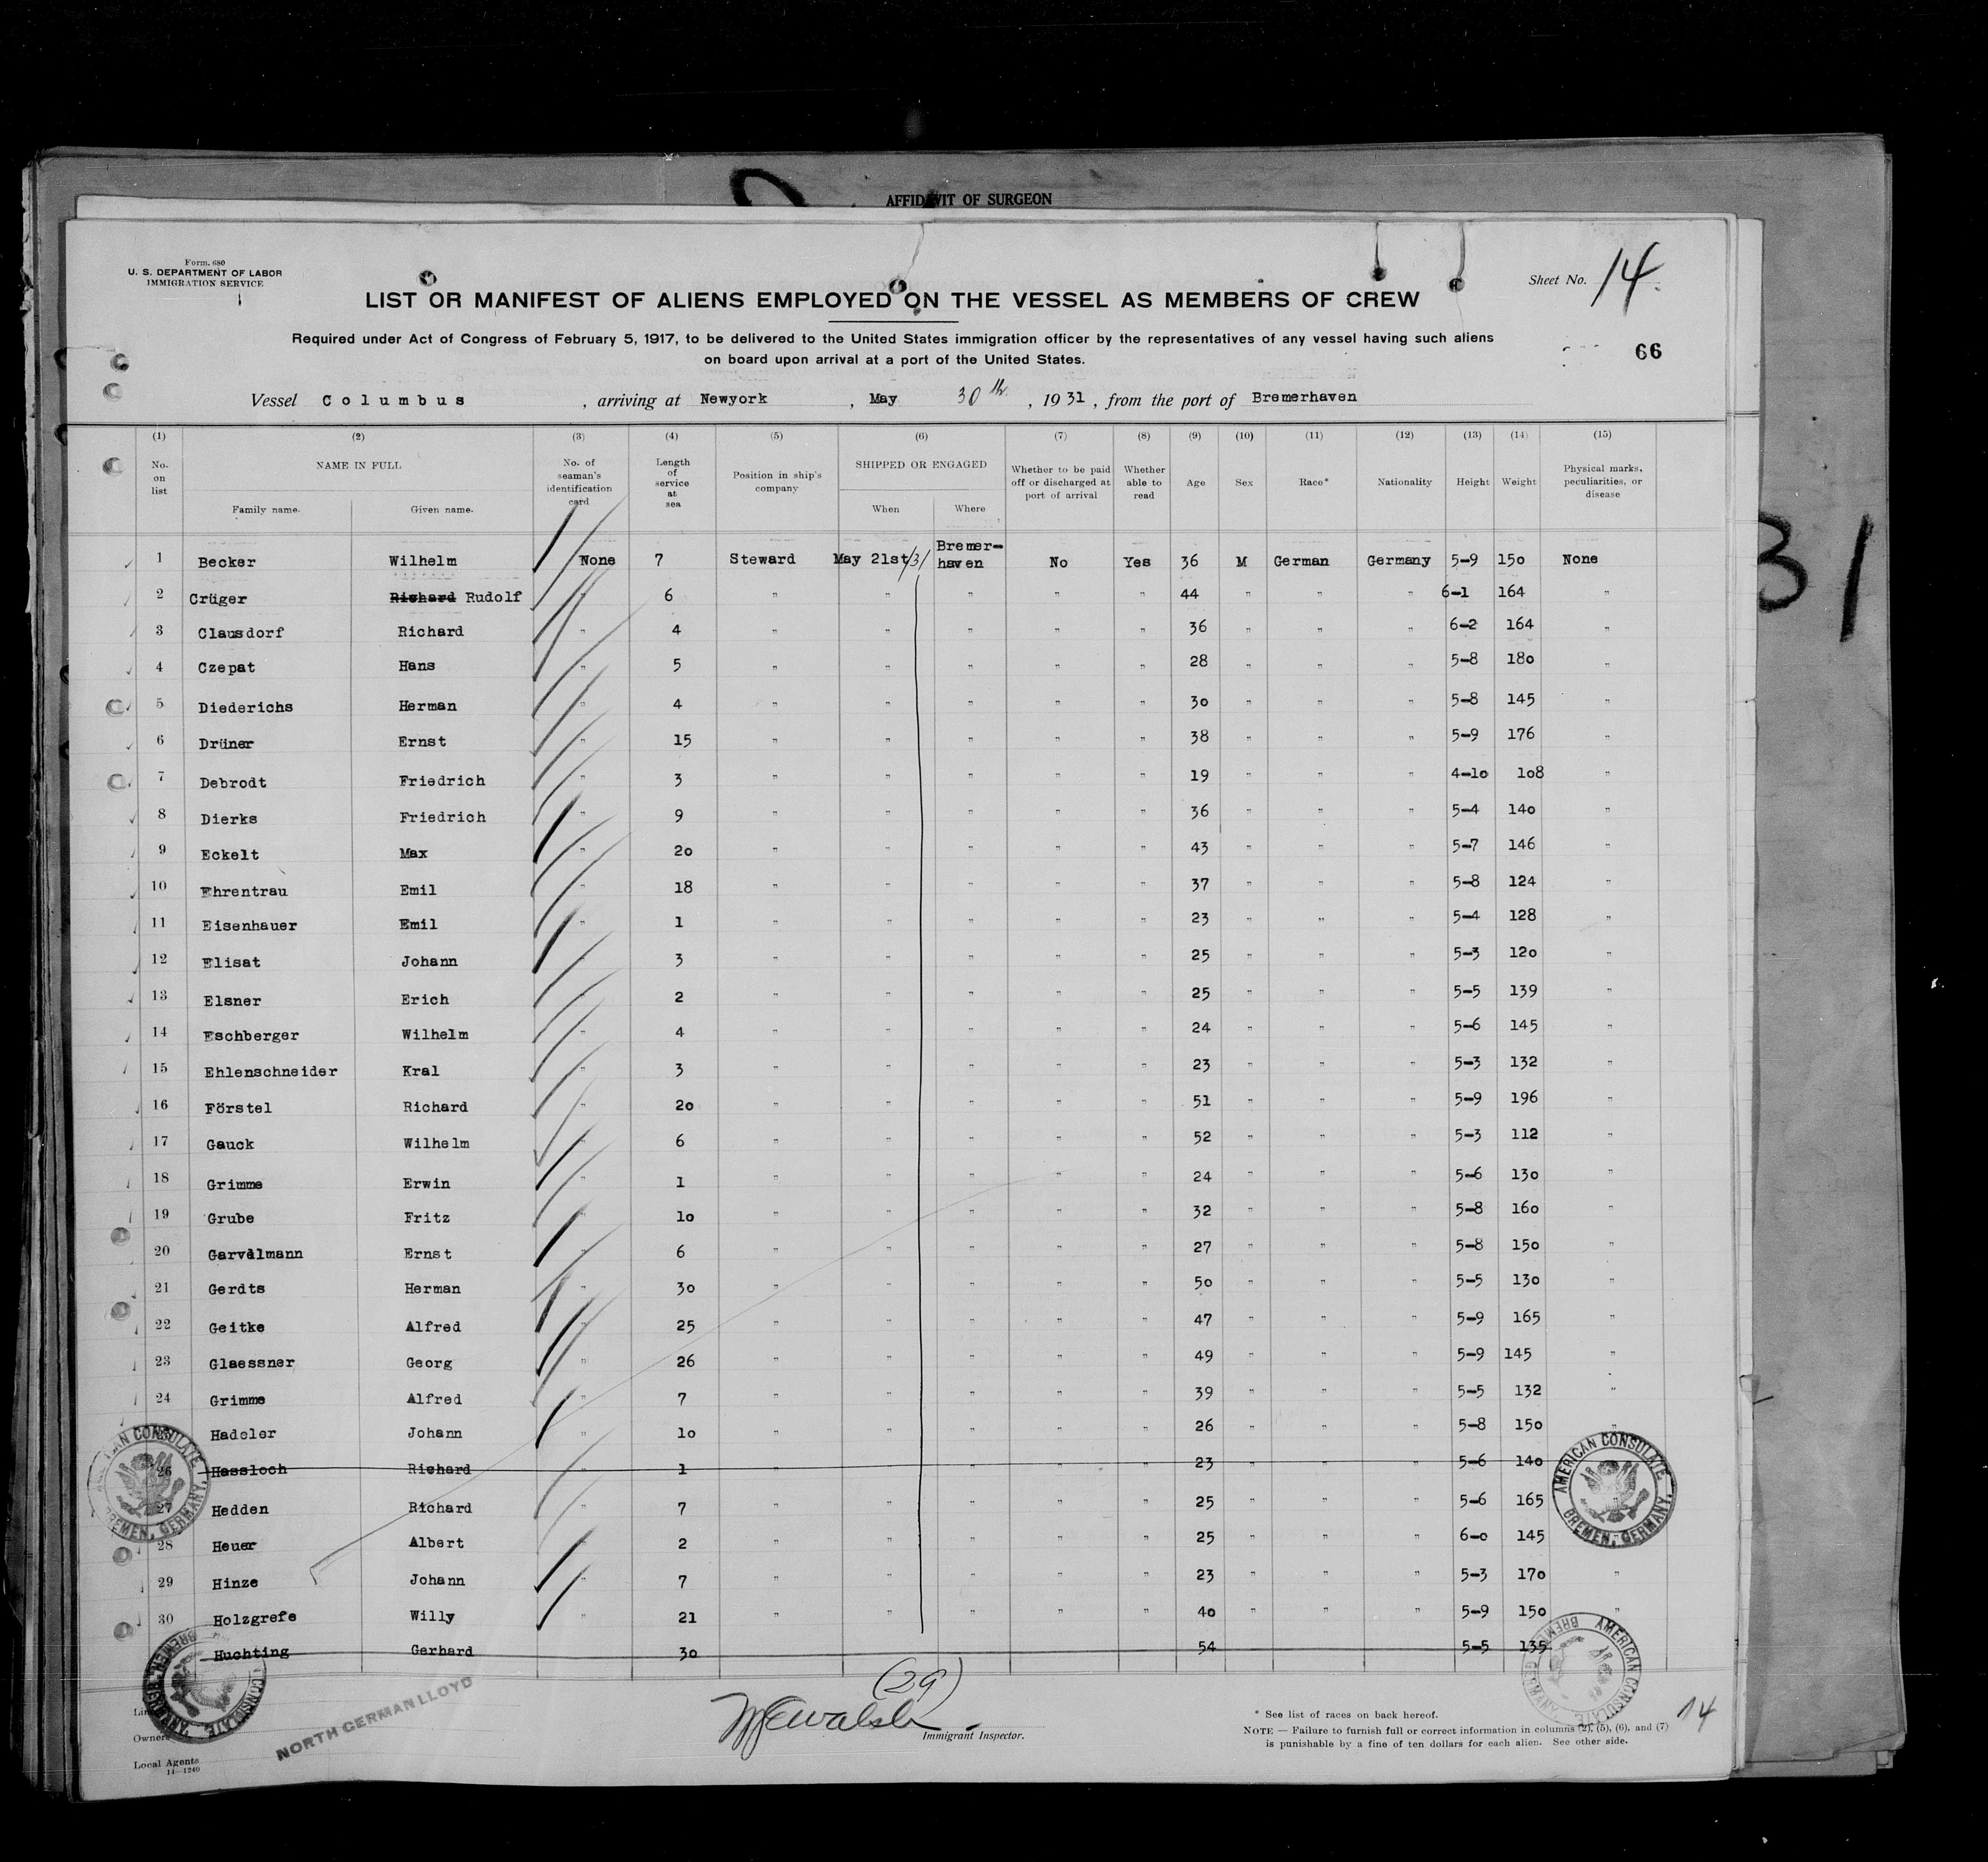 AFFIDAVIT OF SURGEON
Form. 680
U. S. DEPARTMENT OF LABOR
IMMIGRATION SERVICE
Sheet No. 14.
LIST OR MANIFEST OF ALIENS EMPLOYED ON THE VESSEL AS MEMBERS OF CREW
Required under Act of Congress of February 5, 1917, to be delivered to the United States immigration officer by the representatives of any vessel having such aliens
on board upon arrival at a port of the United States.
66
Vessel Columbus , arriving at Newyork , May 30th , 1931 , from the port of Bremerhaven
(1) (2) (3) (4) (5) (6) (7) (8) (9) (10) (11) (12) (13) (14) (15)
No. on list NAME IN FULL Family name. Given name. No. of seaman's identification card Length of service at sea Position in ship's company SHIPPED OR ENGAGED When Where Whether to be paid off or discharged at port of arrival Whether able to read Age Sex Race* Nationality Height Weight Physical marks, peculiarities, or disease
1 Becker Wilhelm None 7 Steward May 21st/31 Bremer-haven No Yes 36 M German Germany 5-9 150 None
2 Crüger Richard Rudolf " 6 " " " " " 44 " " " 6-1 164 "
3 Clausdorf Richard " 4 " " " " " 36 " " " 6-2 164 "
4 Czepat Hans " 5 " " " " " 28 " " " 5-8 180 "
5 Diederichs Herman " 4 " " " " " 30 " " " 5-8 145 "
6 Drüner Ernst " 15 " " " " " 38 " " " 5-9 176 "
7 Debrodt Friedrich " 3 " " " " " 19 " " " 4-10 108 "
8 Dierks Friedrich " 9 " " " " " 36 " " " 5-4 140 "
9 Eckelt Max " 20 " " " " " 43 " " " 5-7 146 "
10 Ehrentrau Emil " 18 " " " " " 37 " " " 5-8 124 "
11 Eisenhauer Emil " 1 " " " " " 23 " " " 5-4 128 "
12 Elisat Johann " 3 " " " " " 25 " " " 5-3 120 "
13 Elsner Erich " 2 " " " " " 25 " " " 5-5 139 "
14 Eschberger Wilhelm " 4 " " " " " 24 " " " 5-6 145 "
15 Ehlenschneider Kral " 3 " " " " " 23 " " " 5-3 132 "
16 Förstel Richard " 20 " " " " " 51 " " " 5-9 196 "
17 Gauck Wilhelm " 6 " " " " " 52 " " " 5-3 112 "
18 Grimme Erwin " 1 " " " " " 24 " " " 5-6 130 "
19 Grube Fritz " 10 " " " " " 32 " " " 5-8 160 "
20 Garvelmann Ernst " 6 " " " " " 27 " " " 5-8 150 "
21 Gerdts Herman " 30 " " " " " 50 " " " 5-5 130 "
22 Geitke Alfred " 25 " " " " " 47 " " " 5-9 165 "
23 Glaessner Georg " 26 " " " " " 49 " " " 5-9 145 "
24 Grimme Alfred " 7 " " " " " 39 " " " 5-5 132 "
Hadeler Johann 10 " " " " " 26 " " " 5-8 150 "
26 Hassloch Richard " 1 " " " " " 23 " " " 5-6 140
27 Hedden Richard " 7 " " " " " 25 " " " 5-6 165
28 Heuer Albert 2 " " " " " 25 " " " 6-0 145
29 Hinze Johann " 7 " " " " " 23 " " " 5-3 170 "
30 Holzgrefe Willy " 21 " " " " " 40 " " " 5-9 150 "
Huchting Gerhard 30 54 5-5 135
AMERICAN CONSULATE
BREMEN, GERMANY.
AMERICAN CONSULATE
BREMEN, GERMANY.
AMERICAN CONSULATE
BREMEN, GERMANY.
AMERICAN CONSULATE
BREMEN, GERMANY.
(29)
Owners
NORTH GERMAN LLOYD
Local Agents
14—1240
Walsh
Immigrant Inspector.
* See list of races on back hereof.
NOTE — Failure to furnish full or correct information in columns (2), (5), (6), and (7)
is punishable by a fine of ten dollars for each alien. See other side.
14
31